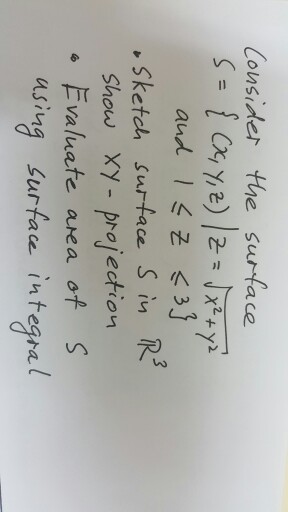 Consider the surface
S = { (x,y,z) | z = √x²+y²
and 1 ≤ z ≤ 3}
• Sketch surface S in ℝ³
show XY-projection
• Evaluate area of S
using surface integral